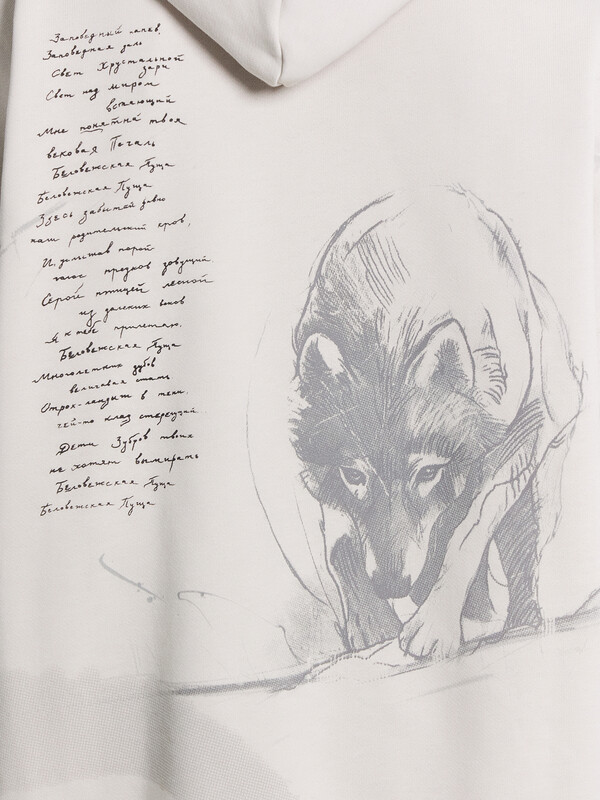 Заповедный напев,
Заповедная даль
Свет Хрустальной
зари
Свет над миром
встающий
Мне понятна твоя
вековая Печаль
Беловежская Пуща
Беловежская Пуща
Здесь забытый давно
наш родительский кров,
И, услышав порой
голос предков зовущий
Серой птицей лесной
из далеких веков
Я к тебе прилетаю,
Беловежская Пуща
Многолетних дубов
величавая стать
Отрок-ландыш в тени,
чей-то клад стерегущий
Дети Зубров твоих
не хотят вымирать
Беловежская Пуща
Беловежская Пуща